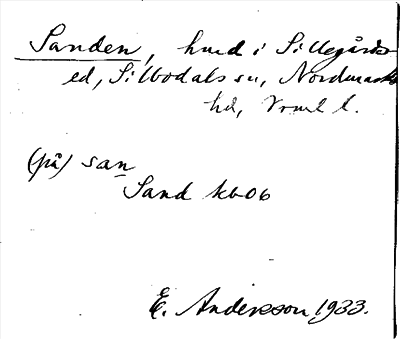 Sanden, hmd i Sillegårds-
ed, Sillbodals sn, Nordmarks
hd, Vrml l.
(på) san
Sand kb06
E. Andersson 1933.